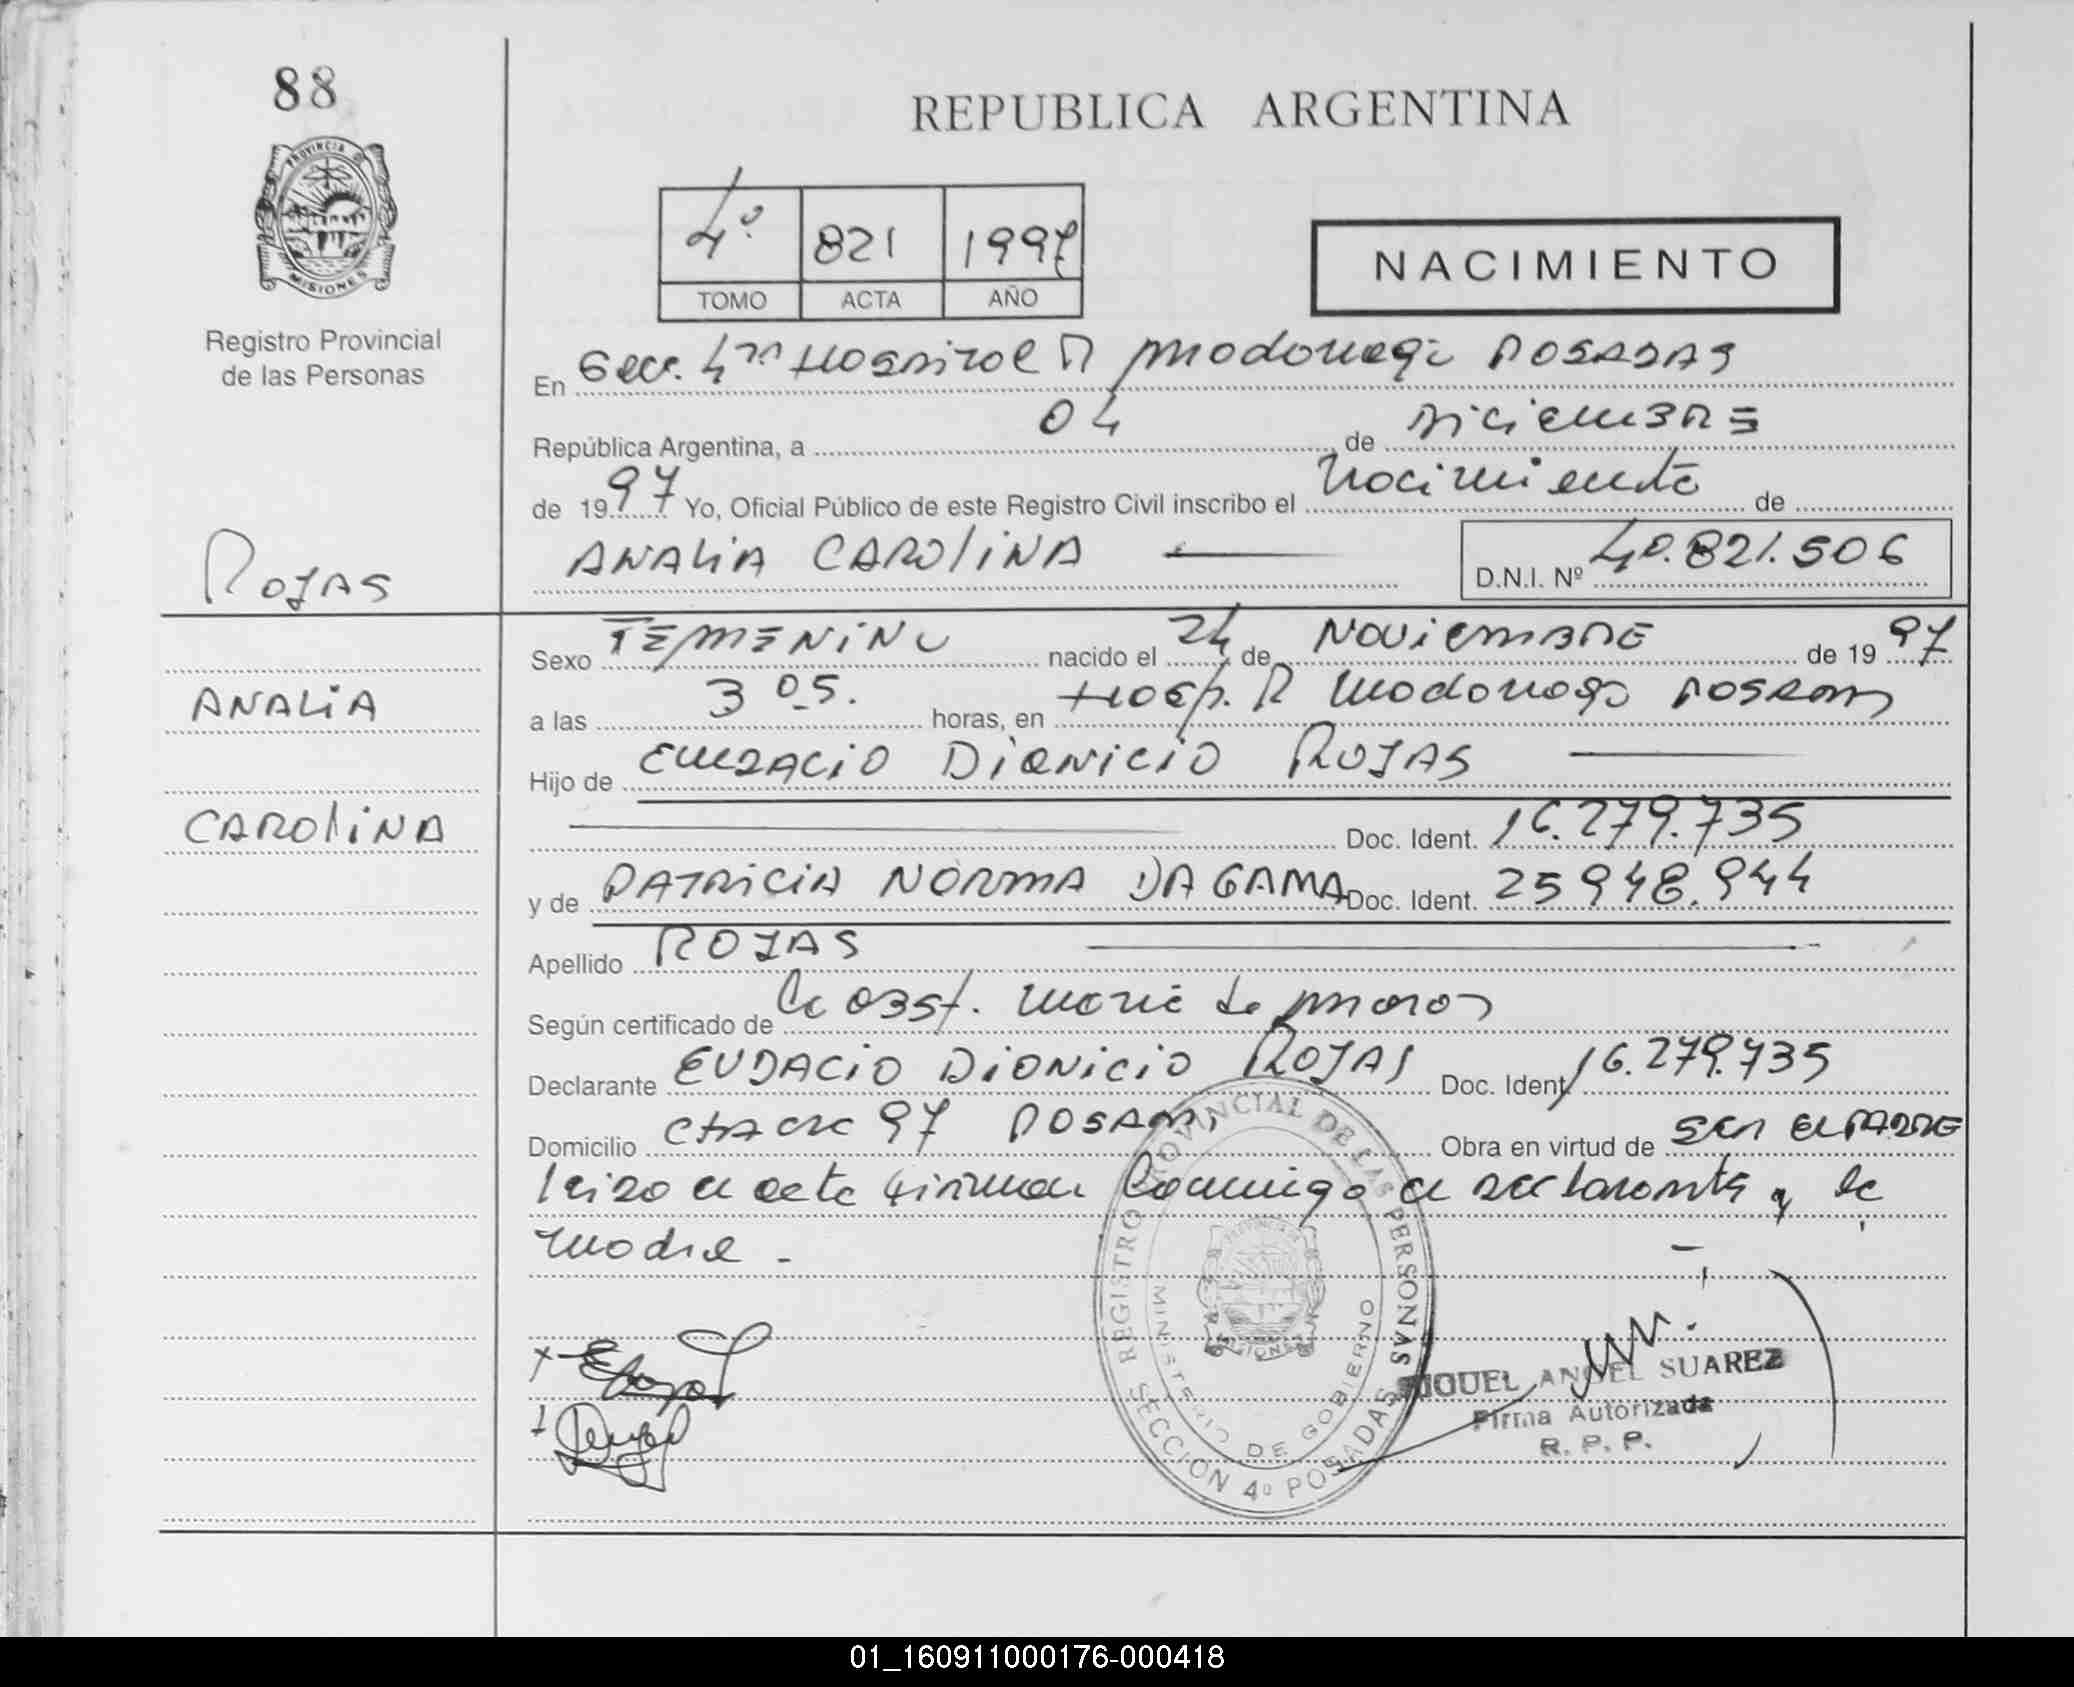 88
REPUBLICA ARGENTINA
PROVINCIA DE
MISIONES
Registro Provincial
de las Personas
4º 821 1997
TOMO ACTA AÑO
NACIMIENTO
En Secc. 4ta Hospital R Madariaga POSADAS
República Argentina, a 04 de DICIEMBRE
de 1997 Yo, Oficial Público de este Registro Civil inscribo el Nacimiento de
ROJAS
ANALIA CAROLINA
D.N.I. Nº 40.821.506
Sexo FEMENINO nacido el 24 de NOVIEMBRE de 1997
ANALIA
a las 3 05. horas, en Hosp. R Madariaga Posadas
Hijo de EUDACIO DIONICIO ROJAS
CAROLINA
Doc. Ident. 16.279.735
y de PATRICIA NORMA DA GAMA Doc. Ident. 25948.944
Apellido ROJAS
Según certificado de la obst. Maria de
Declarante EUDACIO DIONICIO ROJAS Doc. Ident 16.279.735
Domicilio CHACRA 97 POSADAS Obra en virtud de SER EL PADRE
leido el acta firman Conmigo el declarante y la
Madre -
REGISTRO PROVINCIAL DE LAS PERSONAS
MINISTERIO DE GOBIERNO
SECCION 4º POSADAS
MIGUEL ANGEL SUAREZ
Firma Autorizada
R. P. P.
01_160911000176-000418